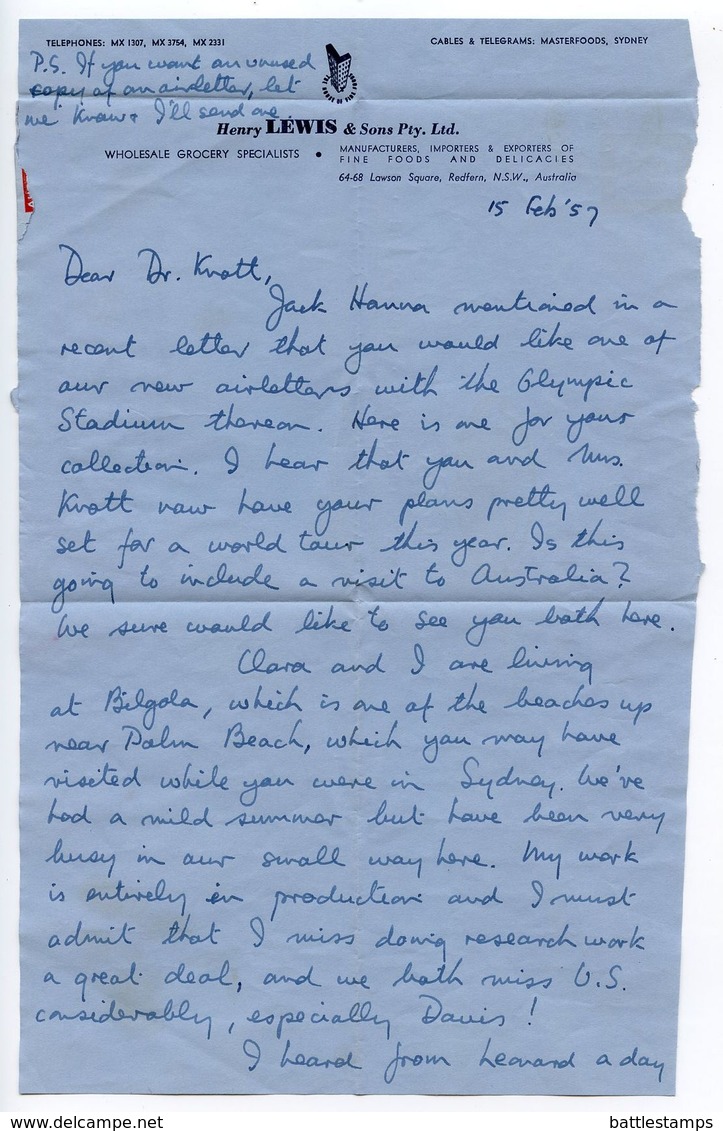 TELEPHONES: MX 1307, MX 3754, MX 2331
CABLES & TELEGRAMS: MASTERFOODS, SYDNEY
P.S. If you want an unused
copy of an airletter, let
me know & I'll send one
THE HOUSE OF FINE FOODS
Henry LEWIS & Sons Pty. Ltd.
WHOLESALE GROCERY SPECIALISTS • MANUFACTURERS, IMPORTERS & EXPORTERS OF
FINE FOODS AND DELICACIES
64-68 Lawson Square, Redfern, N.S.W., Australia
15 Feb '57
Dear Dr. Knott,
Jack Hanna mentioned in a
recent letter that you would like one of
our new airletters with the Olympic
Stadium thereon. Here is one for your
collection. I hear that you and Mrs.
Knott now have your plans pretty well
set for a world tour this year. Is this
going to include a visit to Australia?
We sure would like to see you both here.
Clara and I are living
at Bilgola, which is one of the beaches up
near Palm Beach, which you may have
visited while you were in Sydney. We've
had a mild summer but have been very
busy in our small way here. My work
is entirely in production and I must
admit that I miss doing research work
a great deal, and we both miss U.S.
considerably, especially Davis!
I heard from Leonard a day
www.delcampe.net
battlestamps